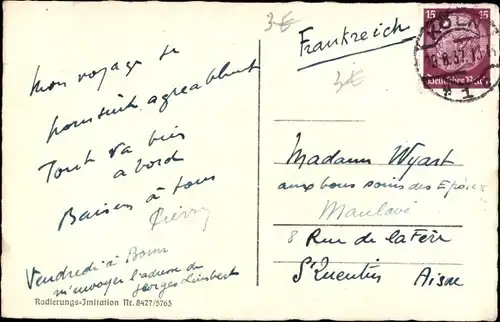 3€
Frankreich
3€
15 15
KÖLN
Deutsches Reich
1
Mon voyage se
poursuit agréablement
Tout va bien
a bord
Baisers à tous
Pierry
Vendredi à Bonn
m'envoyer l'adresse de
Georges Limbert
Radierungs=Imitation Nr. 8427/5765
Madame Wyart
aux bons soins des
8 Rue de la Fère
St Quentin Aisne